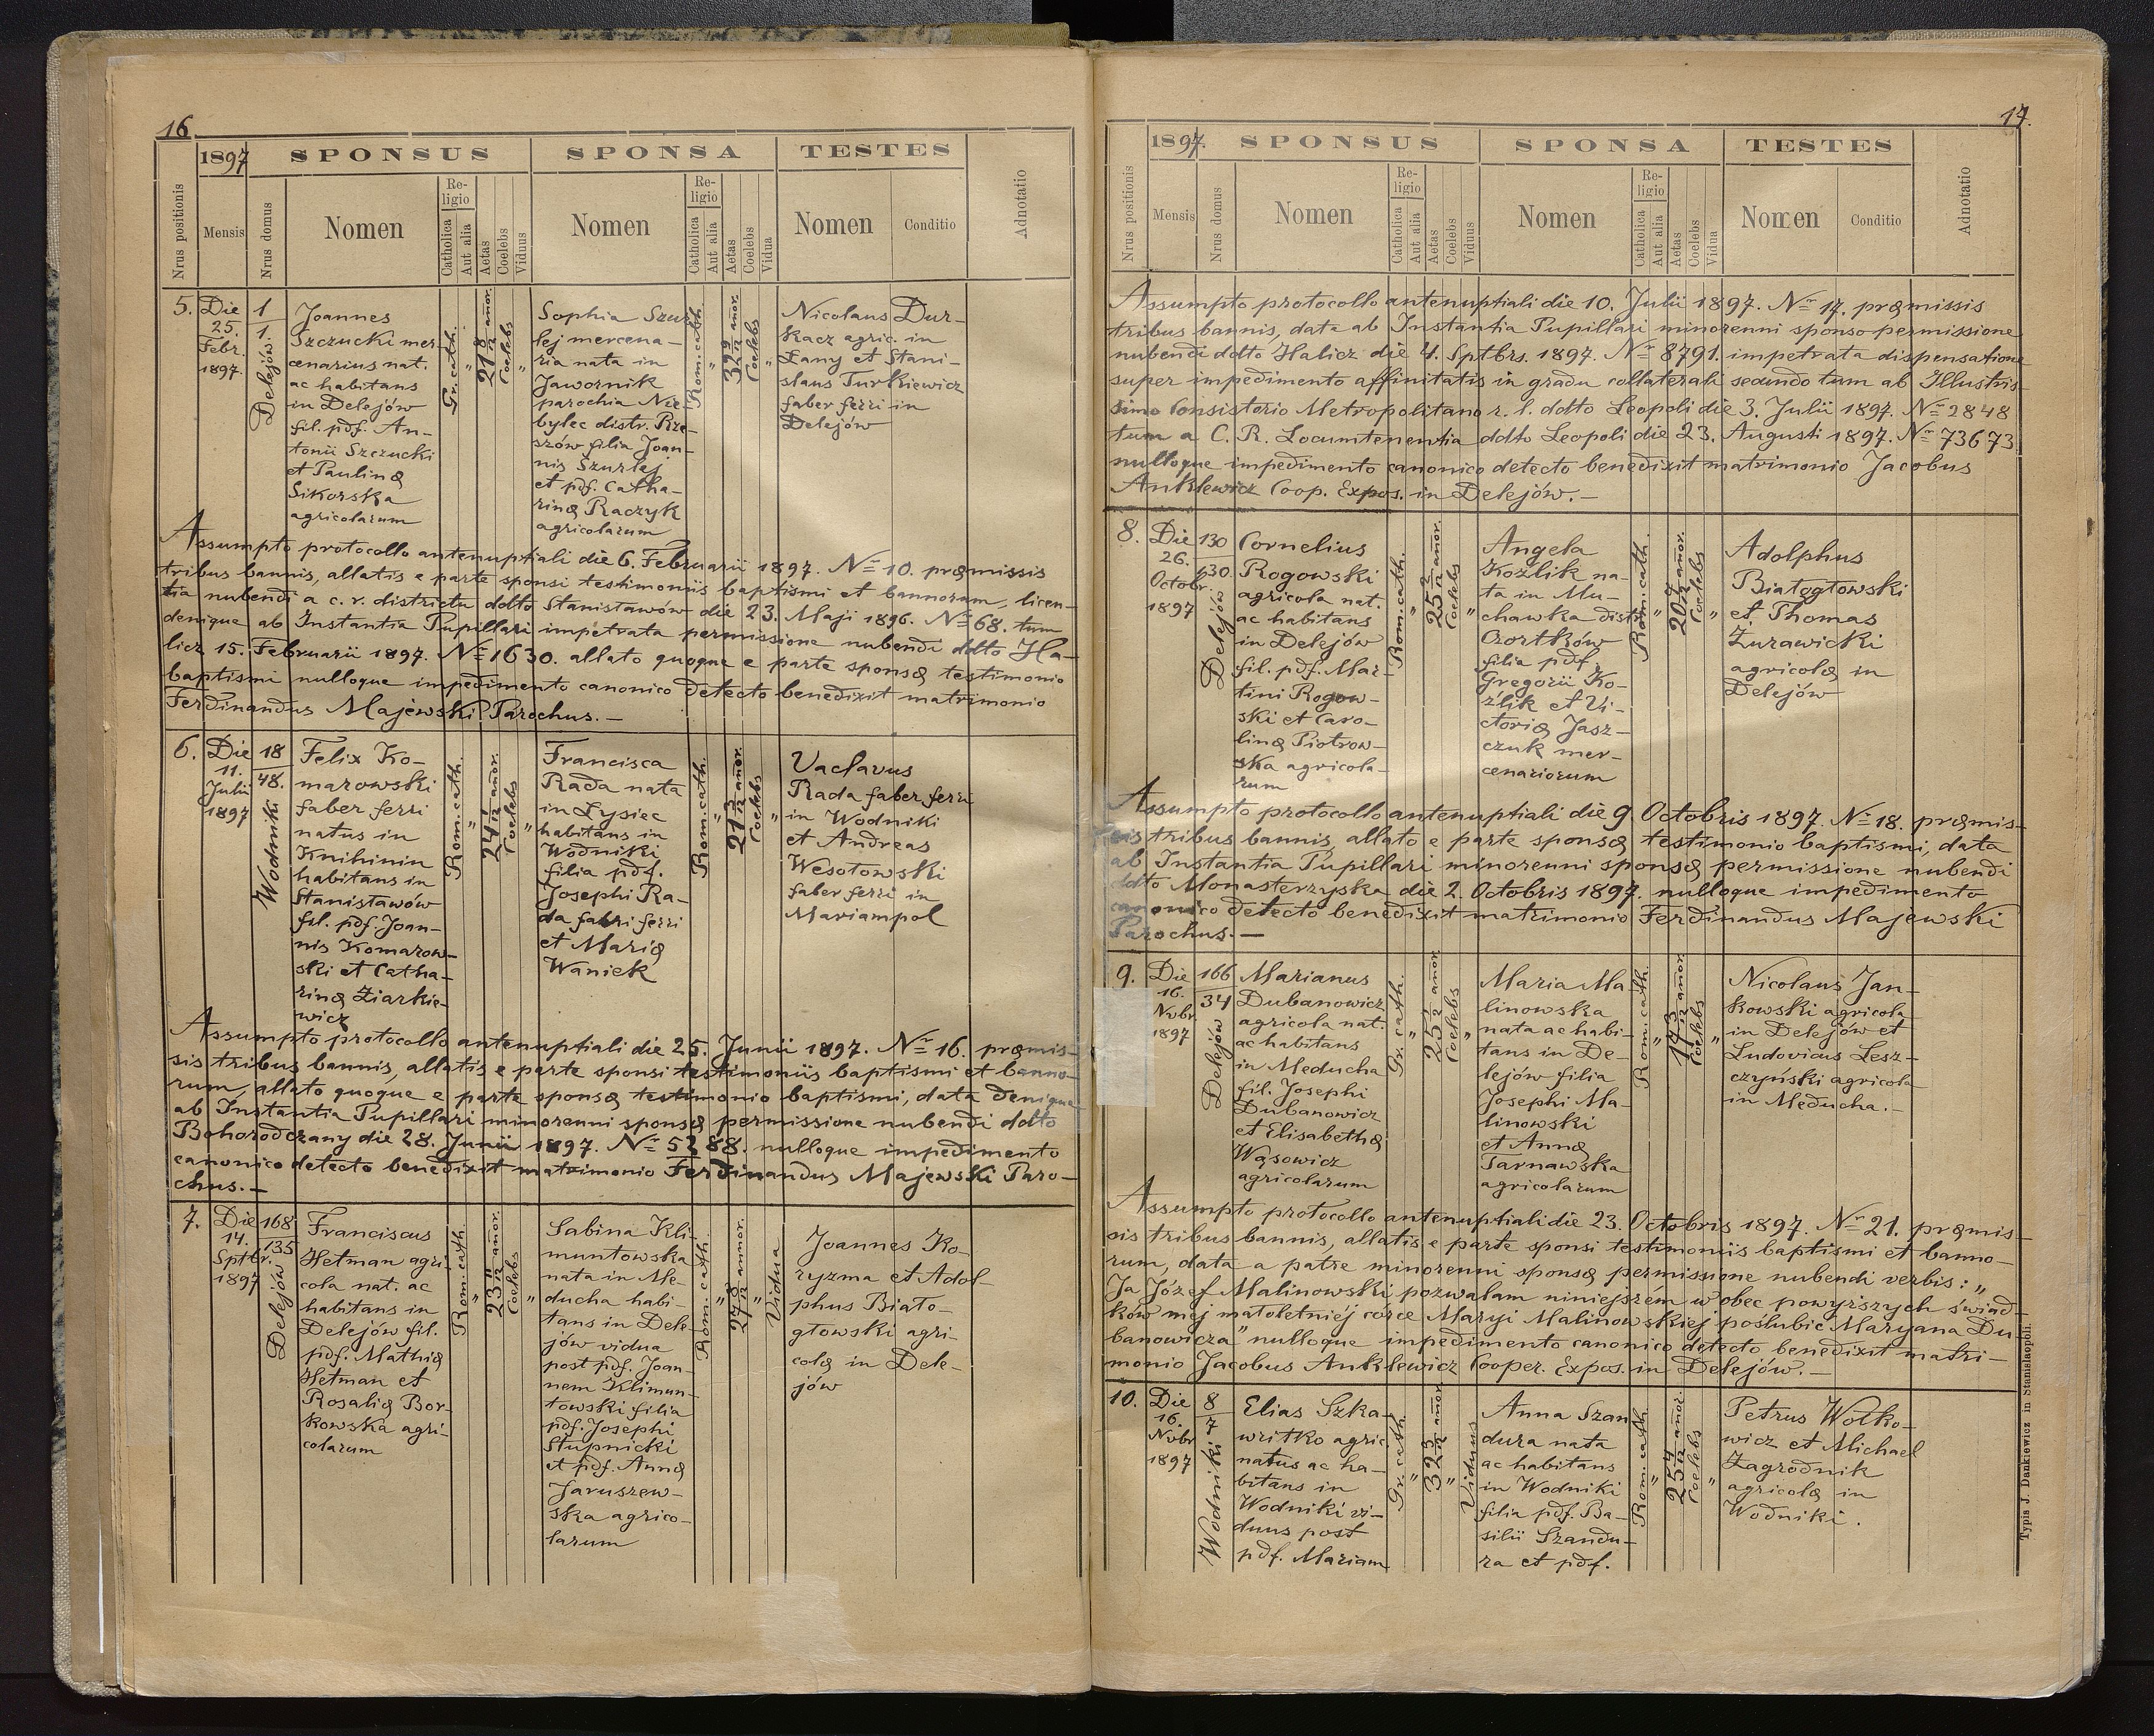 16
1897 SPONSUS SPONSA TESTES
Nrus positionis
Mensis
Nrus domus
Nomen
Religio
Catholica
Aut alia
Aetas
Coelebs
Viduus
Nomen
Religio
Catholica
Aut alia
Aetas
Coelebs
Vidua
Nomen
Conditio
Adnotatio
5.
Die
25.
Febr.
1897.
1
1.
Delejów
Joannes
Szczucki mer-
cenarius nat.
ac habitans
in Delejów
fil. pdf. An-
tonii Szczucki
et Paulinæ
Sikorska
agricolarum
Gr. cath.
"
21 8/12 annor.
Coelebs
"
Sophia Szur-
lej mercena-
ria nata in
Jawornik
parochia Nie-
bylec distr. Rze-
szów filia Joan-
nis Szurlej
et pdf. Catha-
rinæ Raczyk
agricolarum
Rom. cath.
"
32 9/12 annor.
Coelebs
"
Nicolaus Dur-
kacz agric. in
Łany et Stani-
slaus Turkiewicz
faber ferri in
Delejów
Assumpto protocollo antenuptiali die 6. Februarii 1897. Nr 10. præmissis
tribus bannis, allatis e parte sponsi testimoniis baptismi et bannorum, licen-
tia nubendi a c. r. districtu ddto Stanisławów die 23. Maji 1896. Nr 68. tum
denique ab Instantia Pupillari impetrata permissione nubendi ddto Ha-
licz 15. Februarii 1897. Nr 1630. allato quoque e parte sponsæ testimonio
baptismi nulloque impedimento canonico detecto benedixit matrimonio
Ferdinandus Majewski Parochus.—
6.
Die
11.
Julii
1897
18
48.
Wodniki
Felix Ko-
marowski
faber ferri
natus in
Knihinin
habitans in
Stanisławów
fil. pdf. Joan-
nis Komarow-
ski et Catha-
rinæ Ziarkie-
wicz
Rom. cath.
"
24 1/12 annor.
Coelebs
"
Francisca
Rada nata
in Łysiec
habitans in
Wodniki
filia pdf.
Josephi Ra-
da fabri ferri
et Mariæ
Waniek
Rom. cath.
"
21 3/12 annor.
Coelebs
"
Vaclavus
Rada faber ferri
in Wodniki
et Andreas
Wesołowski
faber ferri in
Mariampol
Assumpto protocollo antenuptiali die 25. Junii 1897. Nr 16. præmis-
sis tribus bannis, allatis e parte sponsi testimoniis baptismi et banno-
rum, allato quoque e parte sponsæ testimonio baptismi, data denique
ab Instantia Pupillari minorenni sponsæ permissione nubendi ddto
Bohorodczany die 28. Junii 1897. Nr 5288. nulloque impedimento
canonico detecto benedixit matrimonio Ferdinandus Majewski Paro-
chus.—
7.
Die
14.
Sptbr.
1897
168
135
Delejów
Franciscus
Hetman agri-
cola nat. ac
habitans in
Delejów fil.
pdf. Mathiæ
Hetman et
Rosaliæ Bor-
kowska agri-
colarum
Rom. cath.
"
23 11/12 annor.
Coelebs
"
Sabina Kli-
muntowska
nata in Me-
ducha habi-
tans in Dele-
jów vidua
post pdf. Joan-
nem Klimun-
towski filia
pdf. Josephi
Słupnicki
et pdf. Annæ
Jaruszew-
ska agrico-
larum
Rom. cath.
"
27 8/12 annor.
"
Vidua
Joannes Ko-
ryzma et Adol-
phus Biało-
głowski agri-
colæ in Dele-
jów
17.
1897. SPONSUS SPONSA TESTES
Nrus positionis
Mensis
Nrus domus
Nomen
Religio
Catholica
Aut alia
Aetas
Coelebs
Viduus
Nomen
Religio
Catholica
Aut alia
Aetas
Coelebs
Vidua
Nomen
Conditio
Adnotatio
Assumpto protocollo antenuptiali die 10. Julii 1897. Nr 17. præmissis
tribus bannis, data ab Instantia Pupillari minorenni sponso permissione
nubendi ddto Halicz die 4. Sptbrs. 1897. Nr 8791. impetrata dispensatione
super impedimento affinitatis in gradu collaterali secundo tum ab Illustris
simo Consistorio Metropolitano r. l. ddto Leopoli die 3. Julii 1897. Nr 2848
tum a C. R. Locumtenentia ddto Leopoli die 23. Augusti 1897. Nr 73673
nulloque impedimento canonico detecto benedixit matrimonio Jacobus
Anklewicz Coop. Expos. in Delejów.—
8.
Die
26.
Octobr.
1897
130
130.
Delejów
Cornelius
Rogowski
agricola nat.
ac habitans
in Delejów
fil. pdf. Mar-
tini Rogow-
ski et Caro-
linæ Piotrow-
ska agricola-
rum
Rom. cath.
"
25 2/12 annor.
Coelebs
"
Angela
Koźlik na-
ta in Mu-
chawka distr.
Czortków
filia pdf.
Gregorii Ko-
źlik et Vi-
ctoriæ Jasz-
czuk mer-
cenariorum
Rom. cath.
"
20 7/12 annor.
Coelebs
"
Adolphus
Białogłowski
et Thomas
Żurawicki
agricolæ in
Delejów
Assumpto protocollo antenuptiali die 9. Octobris 1897. Nr 18. præmis-
sis tribus bannis, allato e parte sponsæ testimonio baptismi, data
ab Instantia Pupillari minorenni sponsæ permissione nubendi
ddto Monasterzyska die 2. Octobris 1897. nulloque impedimento
canonico detecto benedixit matrimonio Ferdinandus Majewski
Parochus.—
9.
Die
16.
Nvbr
1897
166
34
Delejów
Marianus
Dubanowicz
agricola nat.
ac habitans
in Meducha
fil. Josephi
Dubanowicz
et Elisabethæ
Wąsowicz
agricolarum
Gr. cath.
"
25 2/12 annor.
Coelebs
"
Maria Ma-
linowska
nata ac habi-
tans in De-
lejów filia
Josephi Ma-
linowski
et Annæ
Tarnawska
agricolarum
Rom. cath.
"
17 3/12 annor.
Coelebs
"
Nicolaus Jan-
kowski agricola
in Delejów et
Ludovicus Lesz-
czyński agricola
in Meducha.—
Assumpto protocollo antenuptiali die 23. Octobris 1897. Nr 21. præmis-
sis tribus bannis, allatis e parte sponsi testimoniis baptismi et banno-
rum, data a patre minorenni sponsæ permissione nubendi verbis: „
Ja Józef Malinowski pozwalam niniejszém wobec powyższych świad-
ków mej małoletniéj córce Maryi Malinowskiej poślubić Maryana Du-
banowicza" nulloque impedimento canonico detecto benedixit matri-
monio Jacobus Anklewicz Cooper. Expos. in Delejów.—
10.
Die
16.
Nvbr
1897
8
7
Wodniki
Elias Szka-
writko agric.
natus ac ha-
bitans in
Wodniki vi-
duus post
pdf. Mariam
Gr. cath.
"
32 3/12 annor.
"
Viduus
Anna Szan
dura nata
ac habitans
in Wodniki
filia pdf. Ba-
silii Szandu-
ra et pdf.
Rom. cath.
"
25 4/12 annor.
Coelebs
"
Petrus Wołko-
wicz et Michael
Zagrodnik
agricolæ in
Wodniki.
Typis J. Dankiewicz in Stanislaopoli.